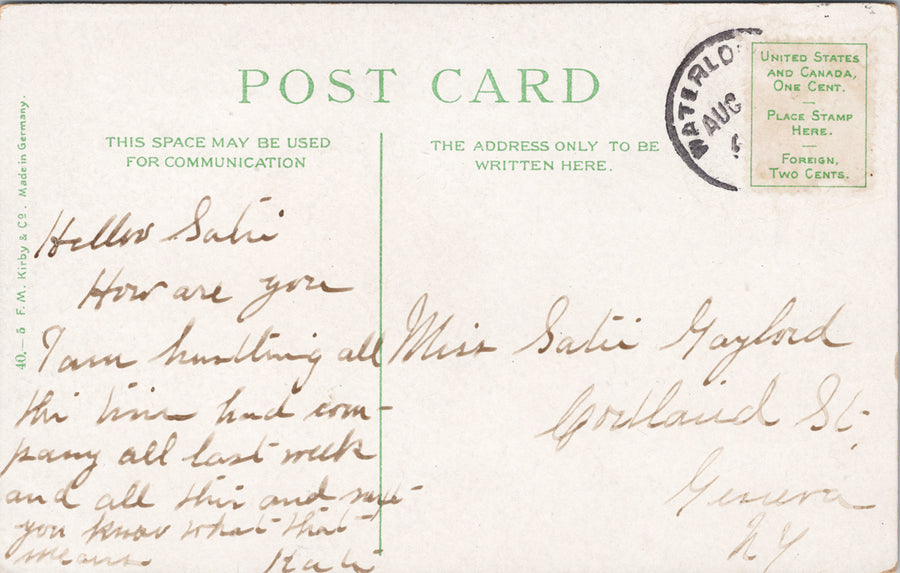 POST CARD
THIS SPACE MAY BE USED
FOR COMMUNICATION
THE ADDRESS ONLY TO BE
WRITTEN HERE.
WATERLO
AUG
UNITED STATES
AND CANADA,
ONE CENT.
—
PLACE STAMP
HERE.
—
FOREIGN,
TWO CENTS.
40.—5 F.M. Kirby & Co. Made in Germany.
Hellow Satie
How are you
I am hustling all
the time had com-
pany all last week
and all this and next
you know what that
means Kate
Miss Satie Gaylord
Cortland St.
Geneva
NY